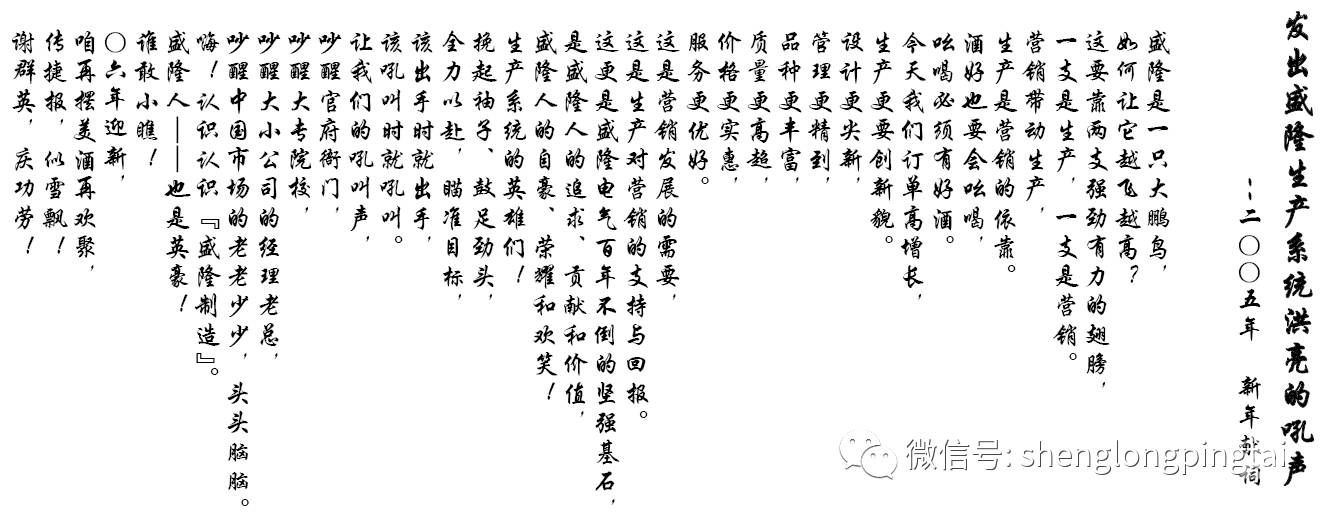 发出盛隆生产系统洪亮的吼声
--二〇〇五年 新年献词
盛隆是一只大鹏鸟，
如何让它越飞越高？
这要靠两支强劲有力的翅膀，
一支是生产，一支是营销。
营销带动生产，
生产是营销的依靠。
酒好也要会吆喝，
吆喝必须有好酒。
今天我们订单高增长，
生产更要创新貌。
设计更尖新，
管理更精到，
品种更丰富，
质量更高超，
价格更实惠，
服务更优好。
这是营销发展的需要，
这是生产对营销的支持与回报。
这更是盛隆电气百年不倒的坚强基石，
是盛隆人的追求、贡献和价值，
盛隆人的自豪、荣耀和欢笑！
生产系统的英雄们！
挽起袖子、鼓足劲头，
全力以赴，瞄准目标，
该出手时就出手，
该吼叫时就吼叫。
让我们的吼叫声，
吵醒官府衙门，
吵醒大专院校，
吵醒大小公司的经理老总，
吵醒中国市场的老老少少，头头脑脑。
嗨！认识认识『盛隆制造』。
盛隆人——也是英豪！
谁敢小瞧！
〇六年迎新，
咱再摆美酒再欢聚，
传捷报，似雪飘！
谢群英，庆功劳！
微信号: shenglongpingtai